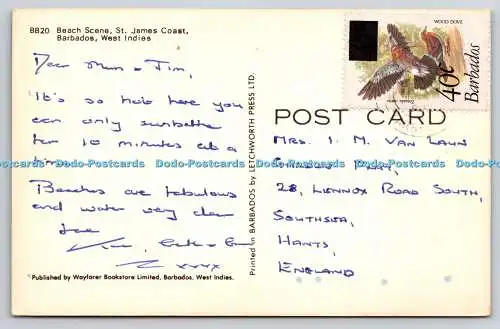 BB20 Beach Scene, St. James Coast,
Barbados, West Indies
Dear Mum & Jim,
It's so hot here you
can only sunbathe
for 10 minutes at a
time.
Beaches are fabulous
and water very clear
Love
xxxx
Published by Wayfarer Bookstore Limited, Barbados, West Indies.
Printed in BARBADOS by LETCHWORTH PRESS LTD.
WOOD DOVE
Barbados
40c
POST CARD
MRS. I. M. VAN LAUN
28, LENNOX ROAD SOUTH,
SOUTHSEA,
HANTS,
ENGLAND
Dodo-Postcards Dodo-Postcards Dodo-Postcards Dodo-Postcards Dodo-Postcards